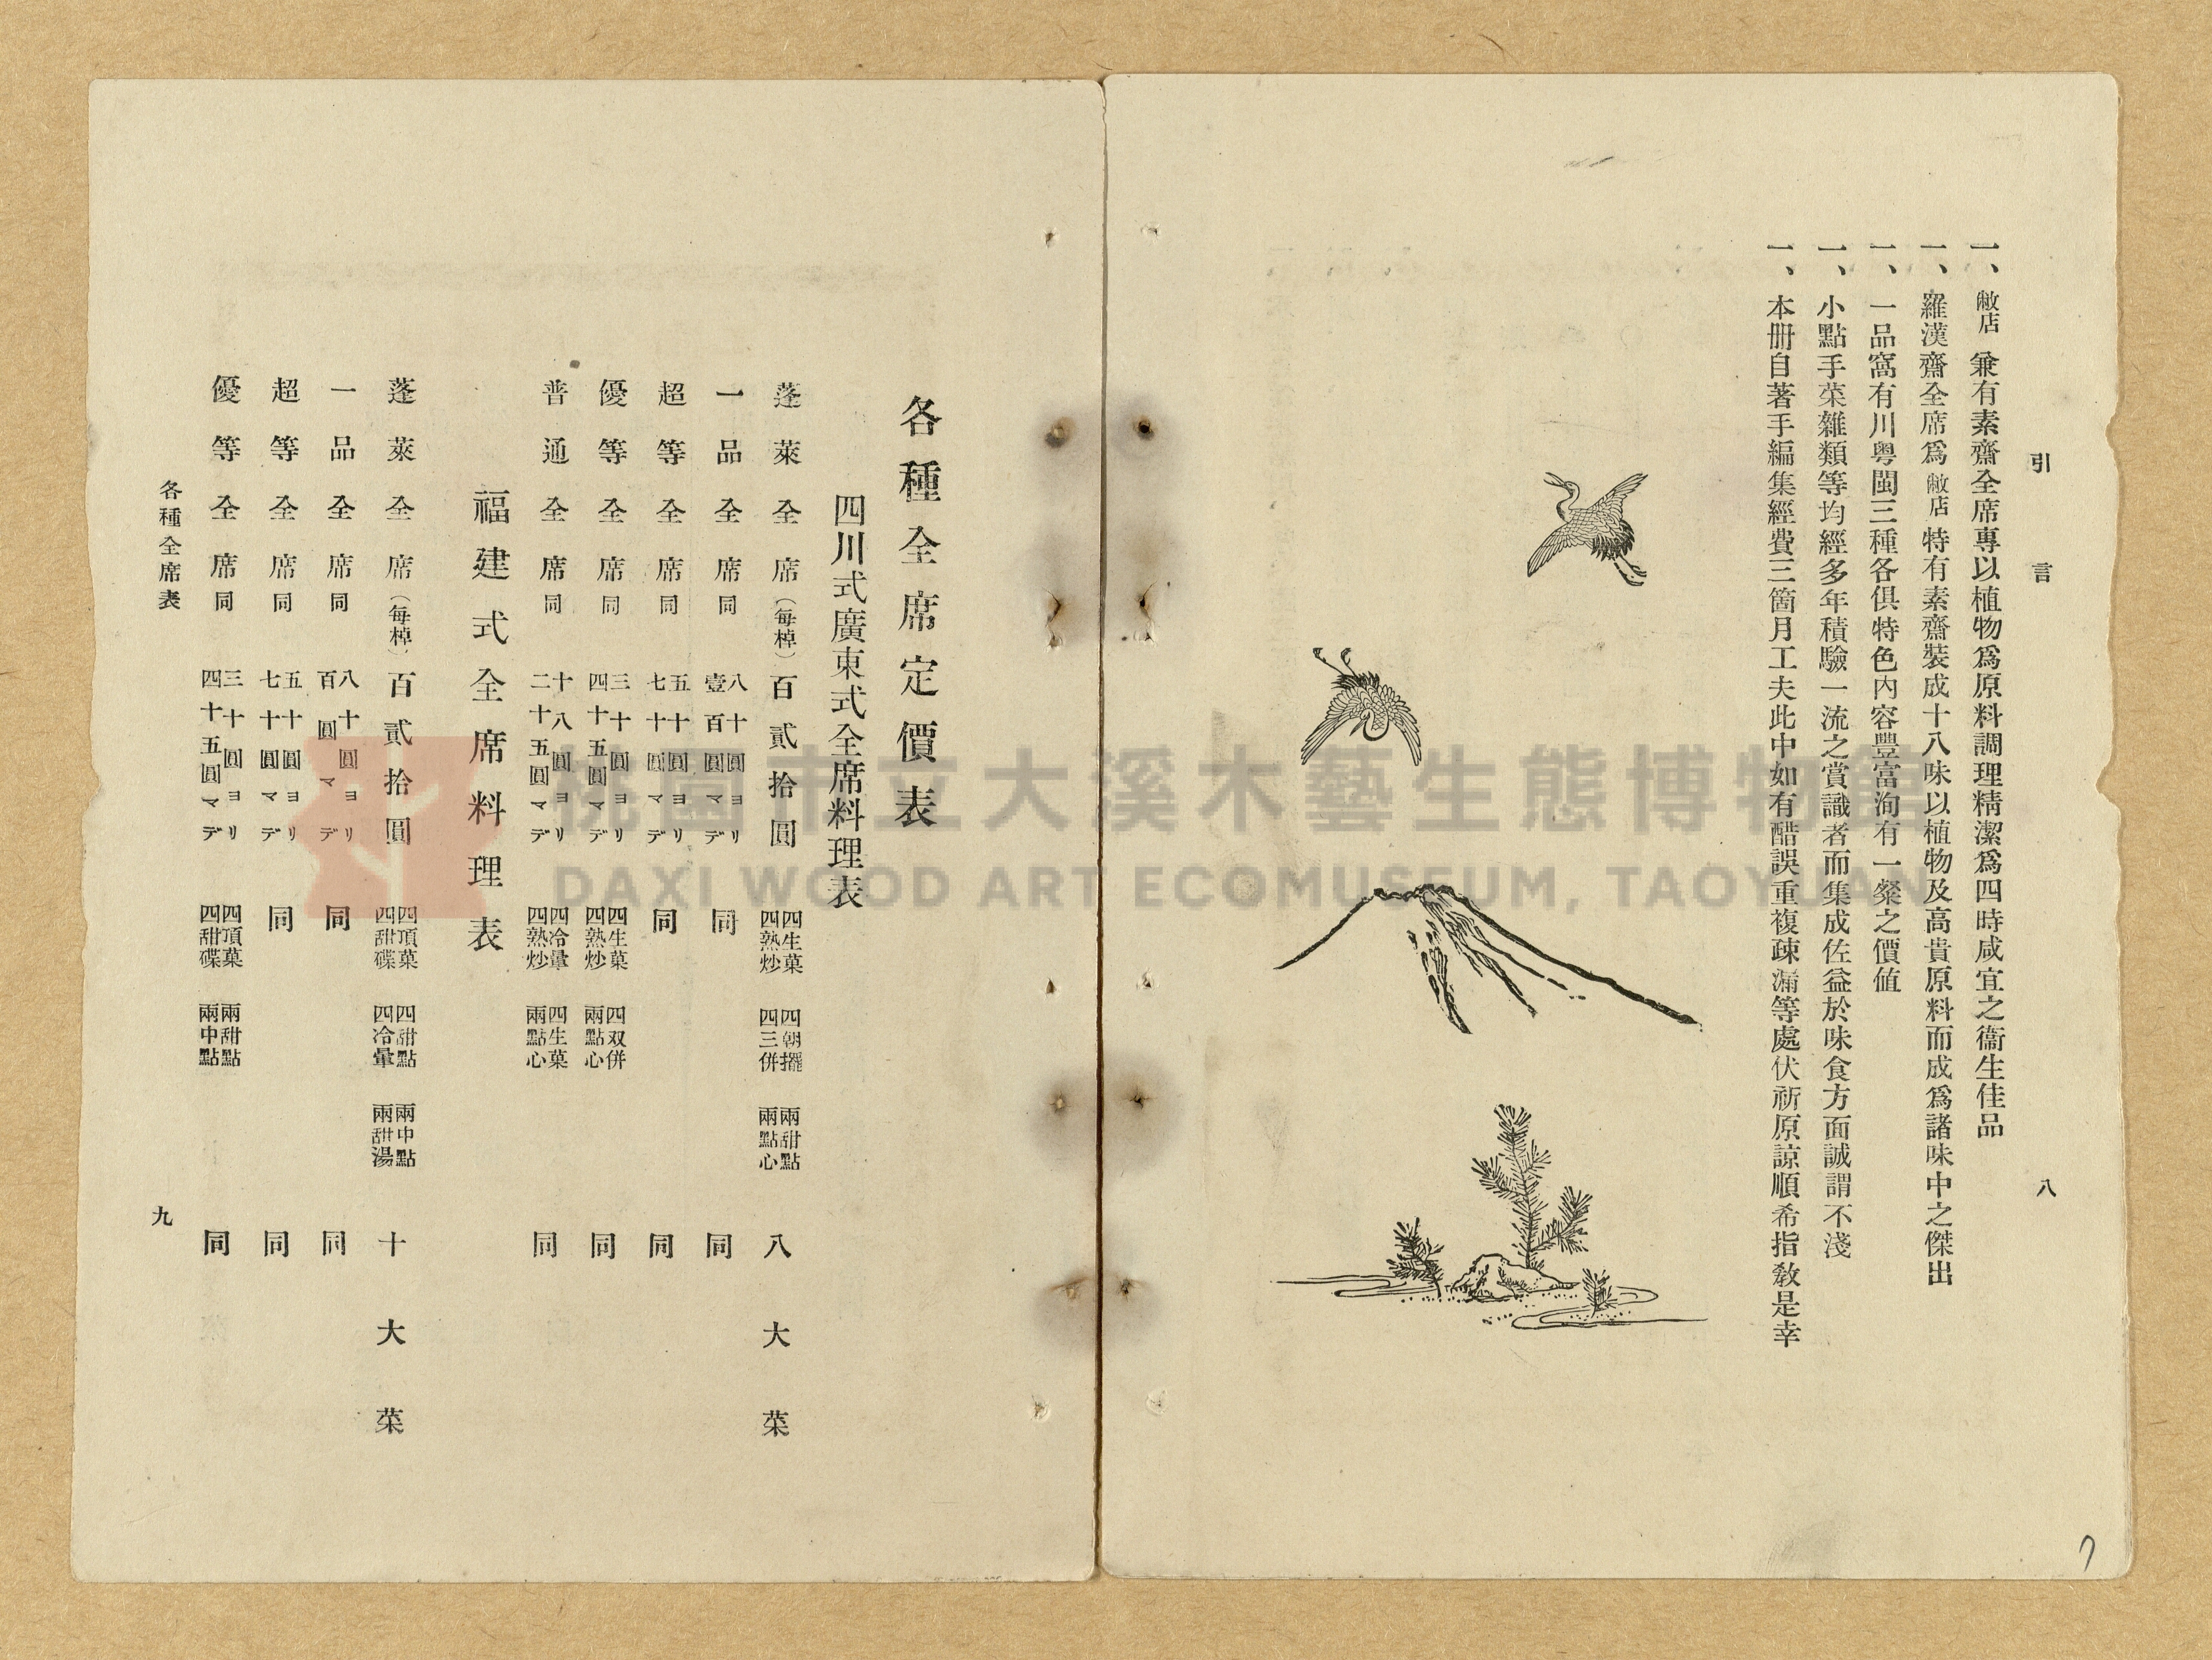 引言
八
一、敝店兼有素齋全席專以植物爲原料調理精潔爲四時咸宜之衞生佳品
一、羅漢齋全席爲敝店特有素齋裝成十八味以植物及高貴原料而成爲諸味中之傑出
一、一品窩有川粤閩三種各俱特色內容豐富洵有一粲之價値
一、小點手菜雜類等均經多年積驗一流之賞識者而集成佐益於味食方面誠謂不淺
一、本册自著手編集經費三箇月工夫此中如有酷誤重複疎漏等處伏祈原諒順希指敎是幸
7
各種全席定價表
四川式廣東式全席料理表
蓬萊全席（每棹）百貳拾圓 四生菓 四熟炒 四朝擺 四三併 兩甜點 兩點心 八大菜
一品全席同 八十圓ヨリ 壹百圓マデ 同 同
超等全席同 五十圓ヨリ 七十圓マデ 同 同
優等全席同 三十圓ヨリ 四十五圓マデ 四生菓 四熟炒 四双併 兩點心 同
普通全席同 十八圓ヨリ 二十五圓マデ 四冷暈 四熟炒 四生菓 兩點心 同
福建式全席料理表
蓬萊全席（每棹）百貳拾圓 四頂菓 四甜碟 四甜點 四冷暈 兩中點 兩甜湯 十大菜
一品全席同 八十圓ヨリ 百圓マデ 同 同
超等全席同 五十圓ヨリ 七十圓マデ 同 同
優等全席同 三十圓ヨリ 四十五圓マデ 四頂菓 四甜碟 兩甜點 兩中點 同
各種全席表
九
桃園市立大溪木藝生態博物館
DAXI WOOD ART ECOMUSEUM, TAOYUAN